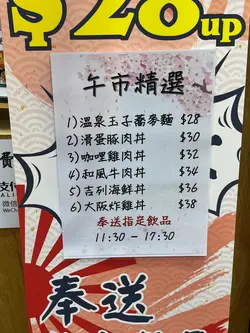 $28up
午市精選
1)溫泉玉子蕎麥麵 $28
2)滑蛋豚肉丼 $30
3)咖哩雞肉丼 $32
4)和風牛肉丼 $34
5)吉列海鮮丼 $36
6)大阪炸雞丼 $38
奉送指定飲品
11:30 - 17:30
支付
微信
WeCh
奉送